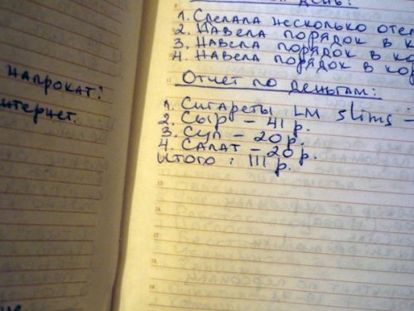 напрокат?
нтернет.
день:
1. Сделала несколько оте
2. Навела порядок в к
3. Навела порядок в ко
4. Навела порядок в ко
Отчет по деньгам:
1. Сигареты LM slims -
2. Сыр - 41 р.
3. Суп - 20 р.
4. Салат - 20 р.
Итого : 111 р.